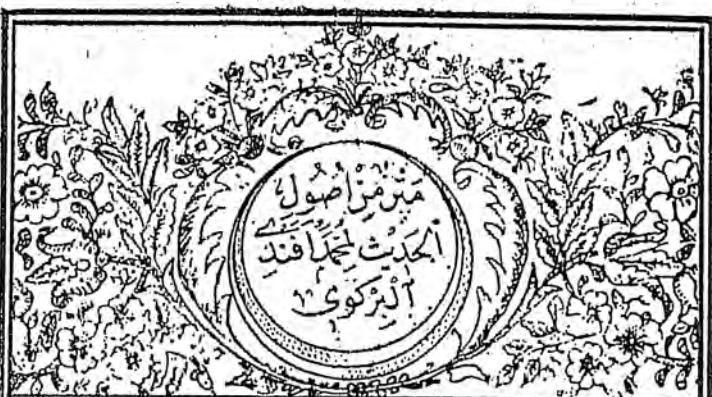 متن من اصول
الحديث لمحمد افندى
البركوى